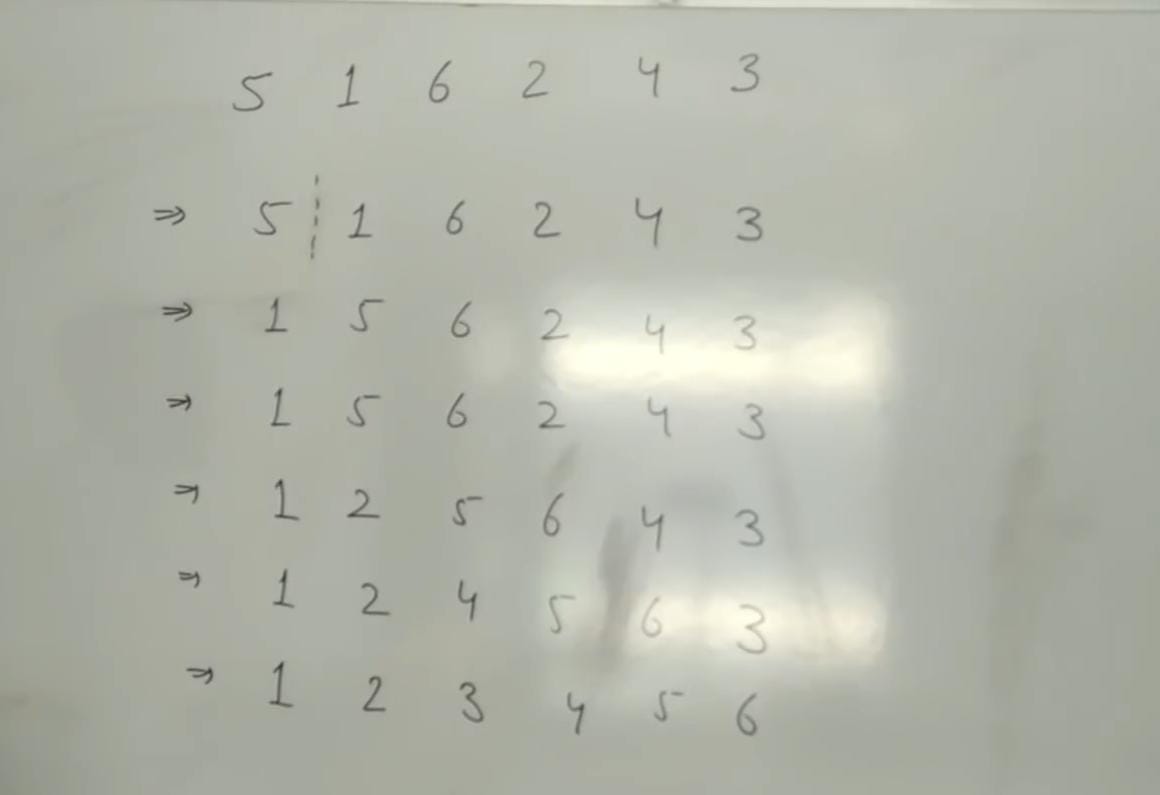 5 1 6 2 4 3
⇒ 5 ¦ 1 6 2 4 3
⇒ 1 5 6 2 4 3
⇒ 1 5 6 2 4 3
⇒ 1 2 5 6 4 3
⇒ 1 2 4 5 6 3
⇒ 1 2 3 4 5 6